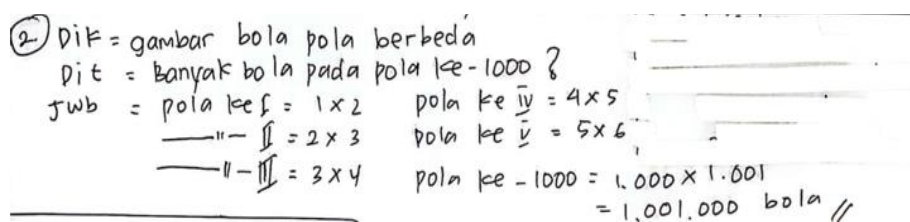 2 Dik = gambar bola pola berbeda
Dit = Banyak bola pada pola ke-1000 ?
Jwb = pola ke I = 1 x 2
——"— II = 2 x 3
——"— III = 3 x 4
pola ke IV = 4 x 5
pola ke V = 5 x 6
pola ke - 1000 = 1.000 x 1.001
= 1.001.000 bola //